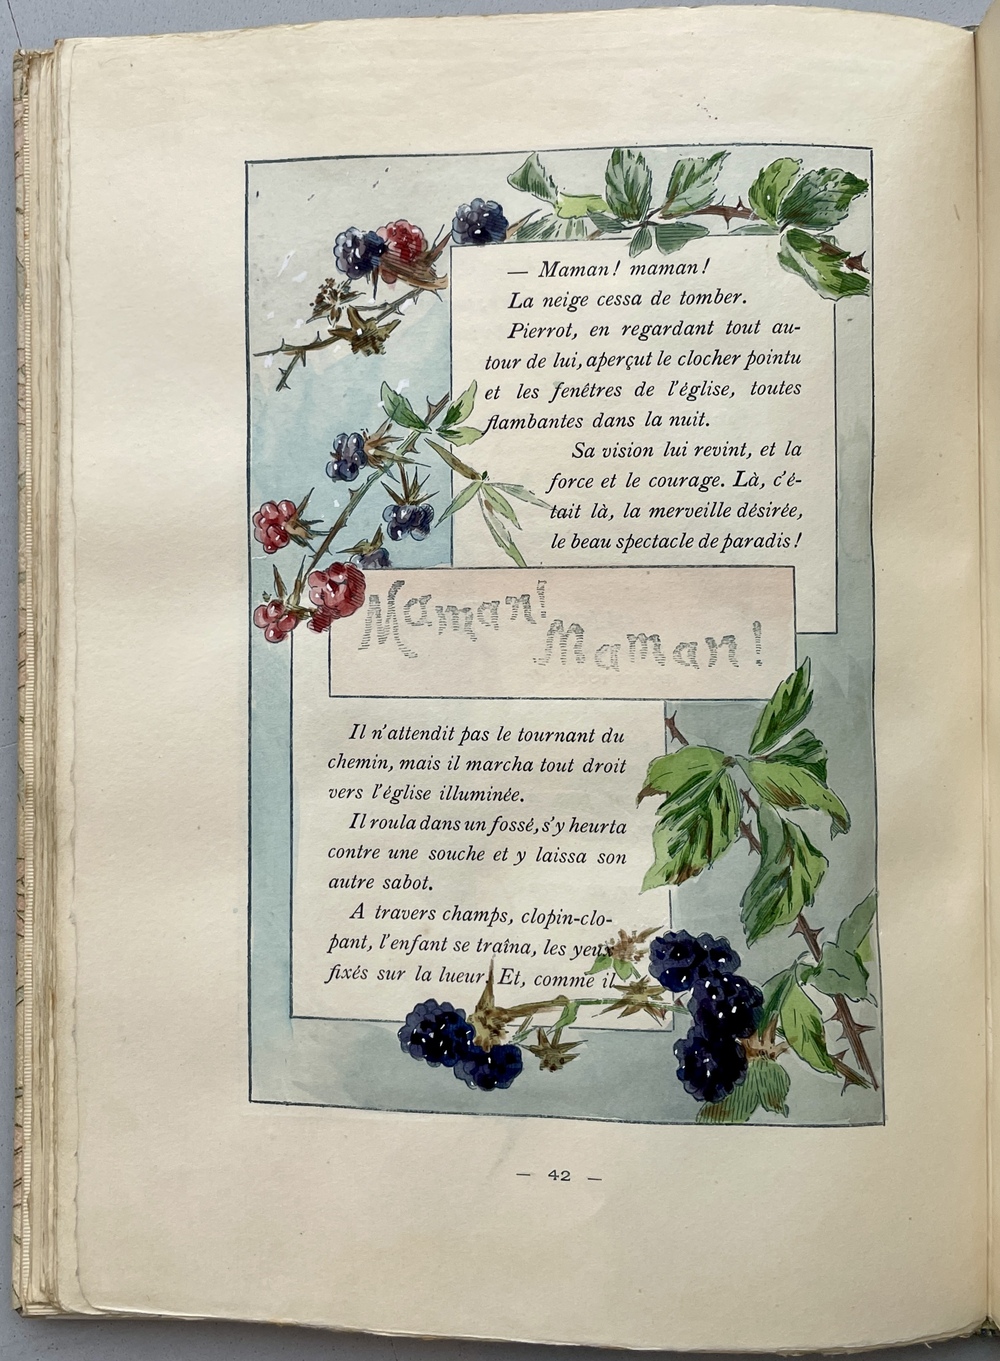 — Maman ! maman !
La neige cessa de tomber.
Pierrot, en regardant tout au-
tour de lui, aperçut le clocher pointu
et les fenêtres de l'église, toutes
flambantes dans la nuit.
Sa vision lui revint, et la
force et le courage. Là, c'é-
tait là, la merveille désirée,
le beau spectacle de paradis !
Maman !
Maman !
Il n'attendit pas le tournant du
chemin, mais il marcha tout droit
vers l'église illuminée.
Il roula dans un fossé, s'y heurta
contre une souche et y laissa son
autre sabot.
A travers champs, clopin-clo-
pant, l'enfant se traîna, les yeux
fixés sur la lueur. Et, comme il
— 42 —